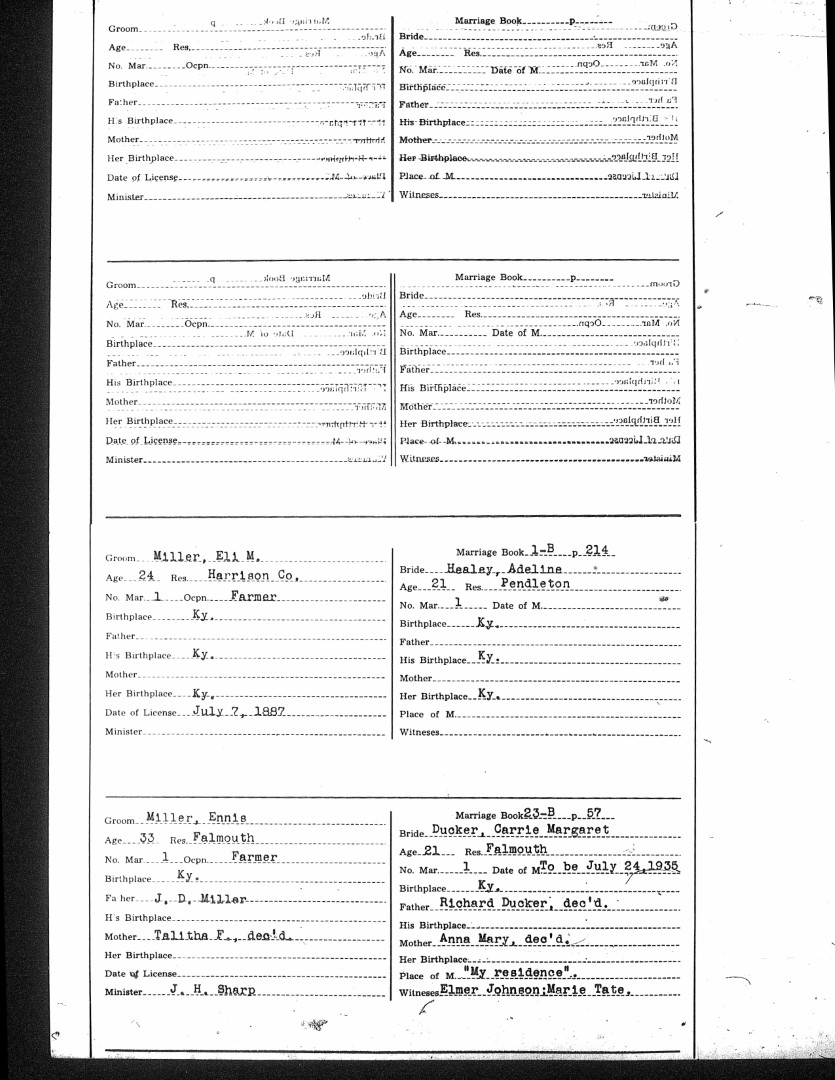 Groom
Age Res.
No. Mar. Ocpn.
Birthplace
Father
His Birthplace
Mother
Her Birthplace
Date of License
Minister
Marriage Book p.
Bride
Age Res.
No. Mar. Date of M.
Birthplace
Father
His Birthplace
Mother
Her Birthplace
Place of M.
Witneses
Groom
Age Res.
No. Mar Ocpn.
Birthplace
Father
His Birthplace
Mother
Her Birthplace
Date of License
Minister
Marriage Book p.
Bride
Age Res.
No. Mar. Date of M.
Birthplace
Father
His Birthplace
Mother
Her Birthplace
Place of M.
Witneses
Groom Miller, Eli M.
Age 24 Res. Harrison Co.
No. Mar. 1 Ocpn. Farmer
Birthplace Ky.
Father
His Birthplace Ky.
Mother
Her Birthplace Ky.
Date of License July 7, 1887
Minister
Marriage Book 1-B p. 214
Bride Healey, Adeline
Age 21 Res. Pendleton
No. Mar. 1 Date of M.
Birthplace Ky.
Father
His Birthplace Ky.
Mother
Her Birthplace Ky.
Place of M.
Witneses
Groom Miller, Ennis
Age 33 Res. Falmouth
No. Mar 1 Ocpn. Farmer
Birthplace Ky.
Father J. D. Miller
His Birthplace
Mother Talitha F., dec'd.
Her Birthplace
Date of License
Minister J. H. Sharp
Marriage Book 23-B p. 57
Bride Ducker, Carrie Margaret
Age 21 Res. Falmouth
No. Mar. 1 Date of M. To be July 24,1935
Birthplace Ky.
Father Richard Ducker, dec'd.
His Birthplace
Mother Anna Mary, dec'd.
Her Birthplace
Place of M. "My residence".
Witneses Elmer Johnson;Marie Tate.